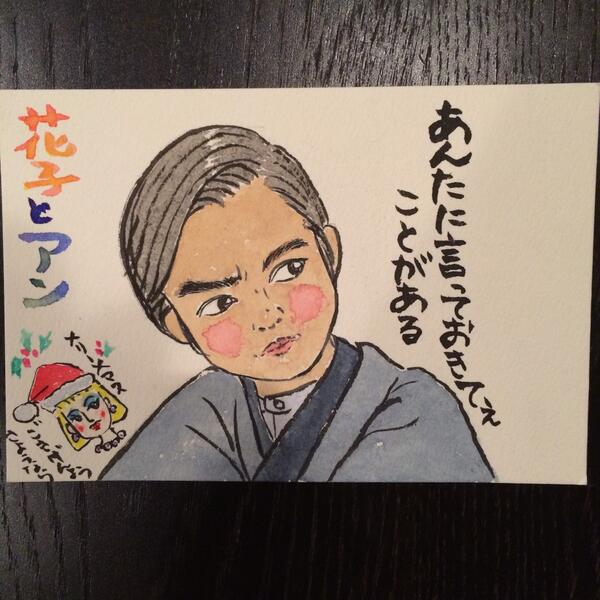 あんたに言っておきてぇ
ことがある
花子とアン